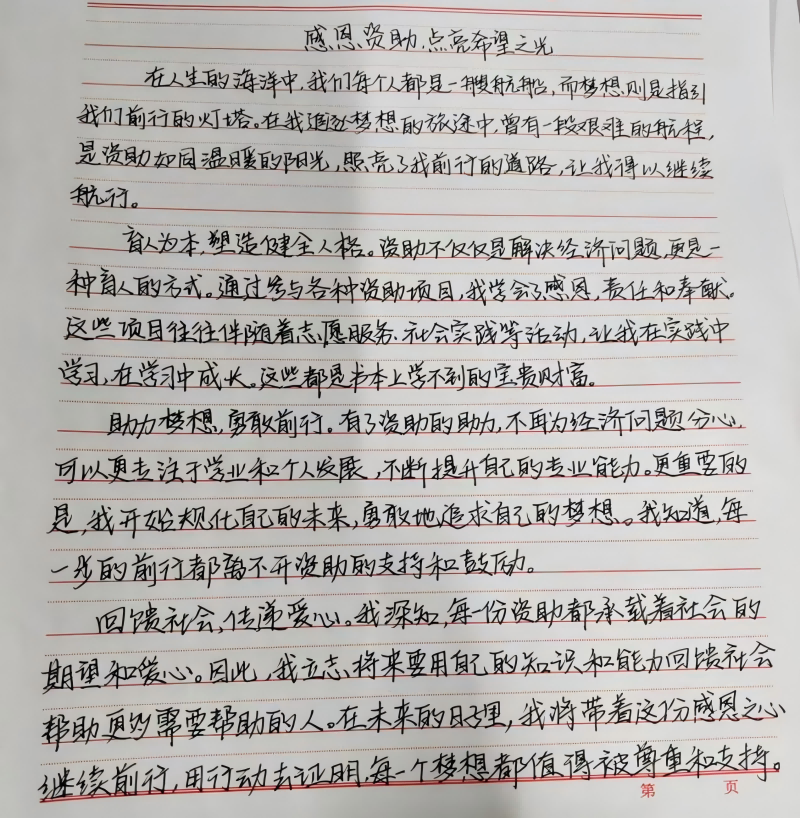 感恩资助,点亮希望之光
在人生的海洋中,我们每个人都是一艘航船,而梦想则是指引
我们前行的灯塔。在我追逐梦想的旅途中,曾有一段艰难的航程,
是资助如同温暖的阳光,照亮了我前行的道路,让我得以继续
航行。
育人为本,塑造健全人格。资助不仅仅是解决经济问题,更是一
种育人的方式。通过参与各种资助项目,我学会了感恩,责任和奉献。
这些项目往往伴随着志愿服务、社会实践等活动,让我在实践中
学习,在学习中成长。这些都是书本上学不到的宝贵财富。
助力梦想,勇敢前行。有了资助的助力,不再为经济问题分心,
可以更专注于学业和个人发展,不断提升自己的专业能力。更重要的
是,我开始规化自己的未来,勇敢地追求自己的梦想。我知道,每
一步的前行都离不开资助的支持和鼓励。
回馈社会,传递爱心。我深知,每一份资助都承载着社会的
期望和爱心。因此,我立志,将来要用自己的知识和能力回馈社会
帮助更多需要帮助的人。在未来的日子里,我将带着这份感恩之心
继续前行,用行动去证明,每一个梦想都值得被尊重和支持。
第 页